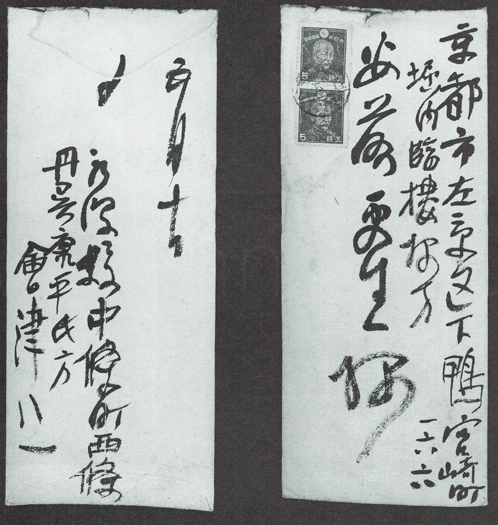 京都市左京区下鴨宮崎町
一六六
堀内臨樓様方
安藤更生様
五月十
新潟縣中條町西條
丹呉康平氏方
會津八一
5
5